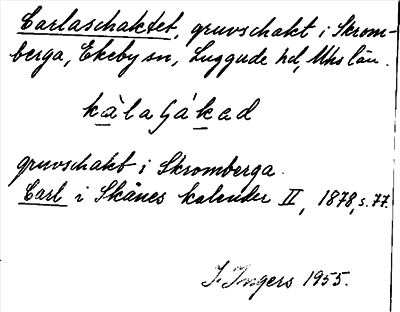 Carlaschaktet, gruvschakt i Skrom-
berga, Ekeby sn, Luggude hd, Mhs län.
kàlaʃákad
gruvschakt i Skromberga.
Carl i Skånes kalender II, 1878, s. 77.
I. Ingers 1955.